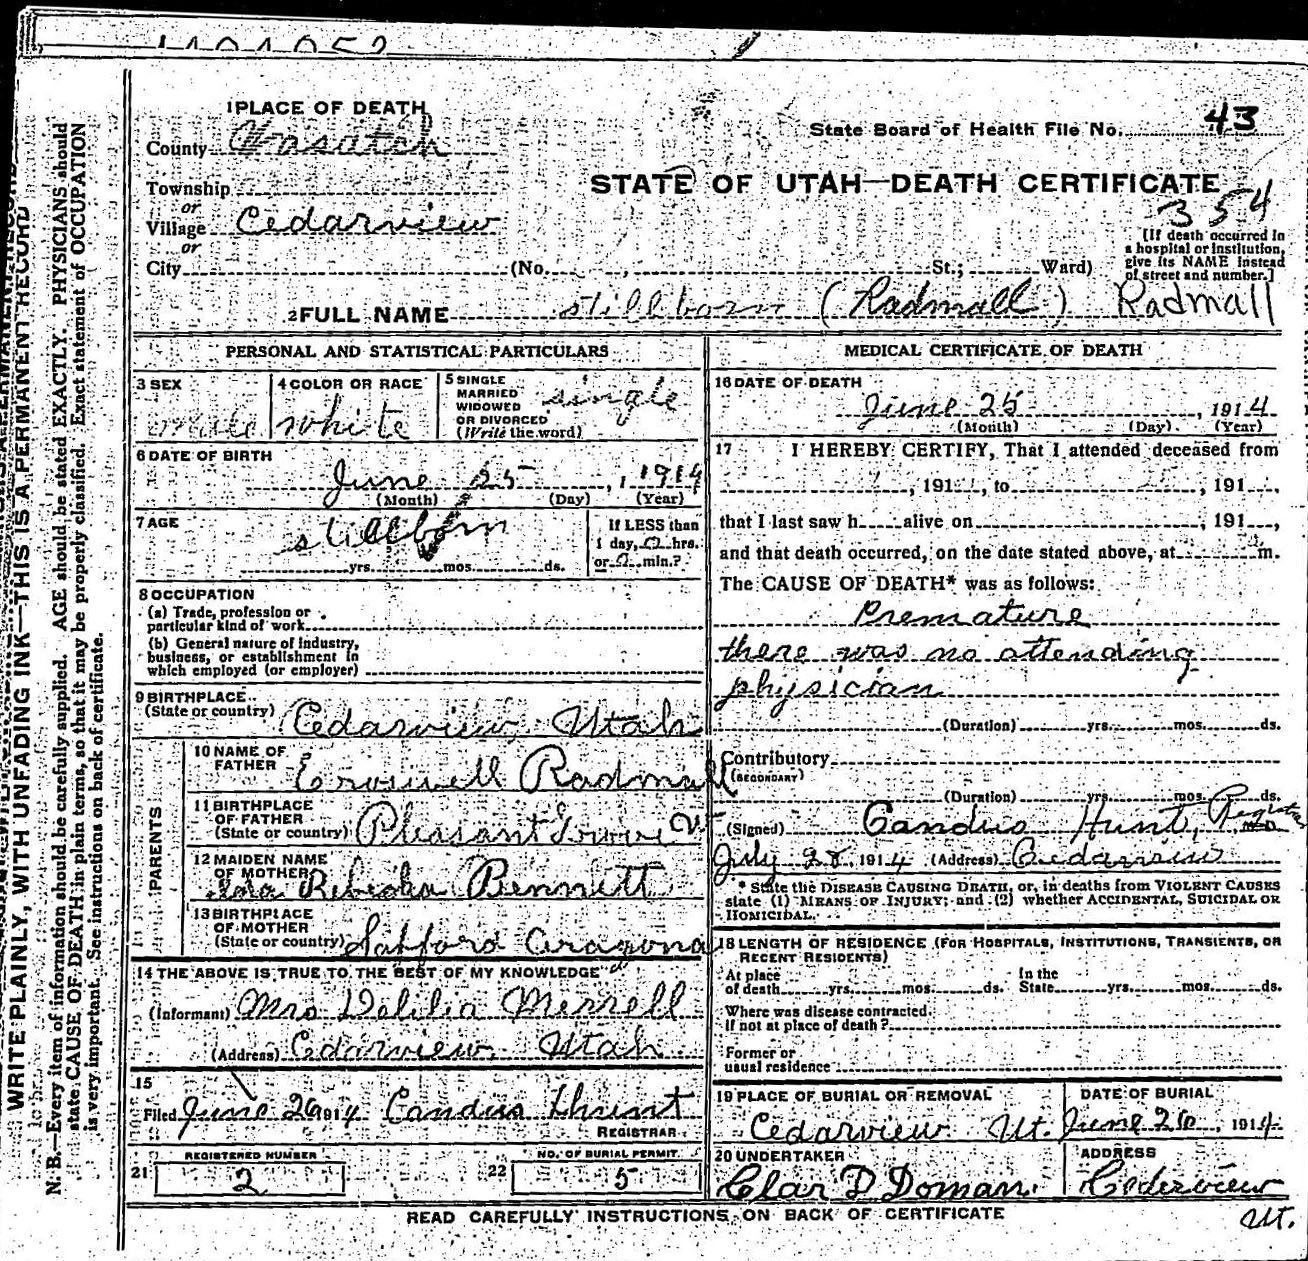 1 PLACE OF DEATH
County Wasatch
State Board of Health File No. 43
Township
or
Village Cedarview
or
City (No. St.; Ward)
STATE OF UTAH—DEATH CERTIFICATE
354
[If death occurred in
a hospital or institution,
give its NAME instead
of street and number.]
2 FULL NAME stillborn (Radmall) Radmall
PERSONAL AND STATISTICAL PARTICULARS
3 SEX
male
4 COLOR OR RACE
white
5 SINGLE
MARRIED
WIDOWED
OR DIVORCED
(Write the word)
single
6 DATE OF BIRTH
June 25, 1914
(Month) (Day) (Year)
7 AGE
stillborn
yrs. mos. ds.
If LESS than
1 day, 0 hrs.
or 0 min.?
8 OCCUPATION
(a) Trade, profession or
particular kind of work
(b) General nature of industry,
business, or establishment in
which employed (or employer)
9 BIRTHPLACE
(State or country) Cedarview Utah
PARENTS
10 NAME OF
FATHER Radmall
11 BIRTHPLACE
OF FATHER
(State or country) Pleasant Grove Ut
12 MAIDEN NAME
OF MOTHER
Ida Rebecka Bennett
13 BIRTHPLACE
OF MOTHER
(State or country) Safford Aragona
14 THE ABOVE IS TRUE TO THE BEST OF MY KNOWLEDGE
(Informant) Mrs Delilia Merrell
(Address) Cedarview, Utah
15
Filed June 26 1914 Candus Hunt
REGISTRAR
21 REGISTERED NUMBER
2
22 NO. OF BURIAL PERMIT
5
MEDICAL CERTIFICATE OF DEATH
16 DATE OF DEATH
June 25, 1914
(Month) (Day) (Year)
17 I HEREBY CERTIFY, That I attended deceased from
, 191 , to , 191 ,
that I last saw h alive on , 191 ,
and that death occurred, on the date stated above, at m.
The CAUSE OF DEATH* was as follows:
Premature
there was no attending
physician
(Duration) yrs. mos. ds.
Contributory
(SECONDARY)
(Duration) yrs. mos. ds.
(Signed) Candus Hunt, Registrar
July 28, 1914 (Address) Cedarview
* State the DISEASE CAUSING DEATH, or, in deaths from VIOLENT CAUSES
state (1) MEANS OF INJURY; and (2) whether ACCIDENTAL, SUICIDAL OR
HOMICIDAL.
18 LENGTH OF RESIDENCE (FOR HOSPITALS, INSTITUTIONS, TRANSIENTS, OR
RECENT RESIDENTS)
At place
of death yrs. mos. ds.
In the
State yrs. mos. ds.
Where was disease contracted,
if not at place of death?
Former or
usual residence
19 PLACE OF BURIAL OR REMOVAL
Cedarview Ut.
DATE OF BURIAL
June 26, 1914
20 UNDERTAKER
Clar D Doman.
ADDRESS
Cedarview
Ut.
READ CAREFULLY INSTRUCTIONS ON BACK OF CERTIFICATE
WRITE PLAINLY, WITH UNFADING INK—THIS IS A PERMANENT RECORD
N. B.—Every item of information should be carefully supplied. AGE should be stated EXACTLY. PHYSICIANS should
state CAUSE OF DEATH in plain terms, so that it may be properly classified. Exact statement of OCCUPATION
is very important. See instructions on back of certificate.